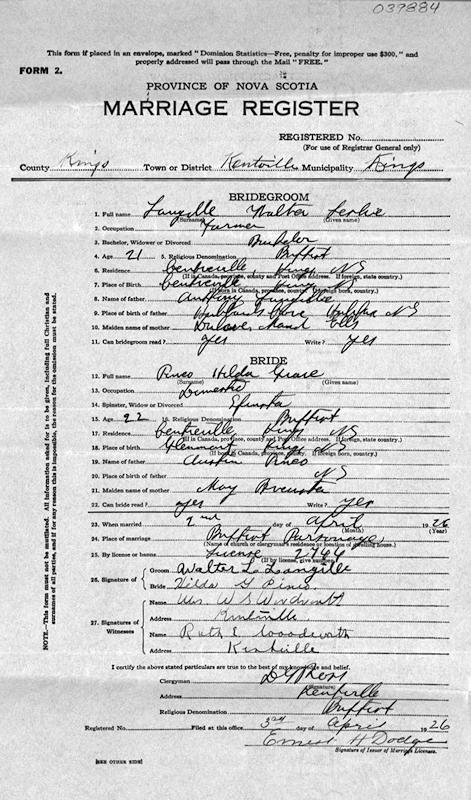 037884
This form if placed in an envelope, marked "Dominion Statistics—Free, penalty for improper use $300," and
properly addressed will pass through the Mail "FREE."
FORM 2.
PROVINCE OF NOVA SCOTIA
MARRIAGE REGISTER
REGISTERED No.
(For use of Registrar General only)
County Kings Town or District Kentville Municipality Kings
BRIDEGROOM
1. Full name Langille Walter Leslie
(Surname) (Given names)
2. Occupation Farmer
3. Bachelor, Widower or Divorced Bachelor
4. Age 21 5. Religious Denomination Baptist
6. Residence Centreville Kings NS
(If in Canada, province, county and Post Office address. If foreign, state country.)
7. Place of Birth Centreville Kings NS
(If born in Canada, province, county. If foreign born, country.)
8. Name of father Langille
9. Place of birth of father Halifax NS
10. Maiden name of mother Maud Ells
11. Can bridegroom read? Yes Write? Yes
BRIDE
12. Full name Pineo Hilda Grace
(Surname) (Given names)
13. Occupation Domestic
14. Spinster, Widow or Divorced Spinster
15. Age 22 16. Religious Denomination Baptist
17. Residence Centreville Kings NS
(If in Canada, province, county and Post Office address. If foreign, state country.)
18. Place of birth Glenmont Kings NS
(If born in Canada, province, county. If foreign born, country.)
19. Name of father Austin Pineo
20. Place of birth of father NS
21. Maiden name of mother May
22. Can bride read? yes Write? yes
23. When married 2nd day of April 1926
(Month) (Year)
24. Place of marriage Baptist Parsonage
(Name of church or clergyman's residence or location of dwelling house.)
25. By license or banns License
(If by license, give number)
26. Signature of Groom Walter L. Langille
Bride Hilda G Pineo
27. Signatures of Witnesses
Name Mrs. W S Woodworth
Address Kentville
Name Ruth E Woodworth
Address Kentville
I certify the above stated particulars are to the best of my knowledge and belief.
Clergyman
(Signature)
Address Kentville
Religious Denomination Baptist
Registered No. Filed at this office 3rd day of April 1926
Ernest H Dodge
Signature of Issuer of Marriage Licenses.
[SEE OTHER SIDE]
NOTE.—This form must not be mutilated. All Information asked for is to be given, including full Christian and
surnames of all parties, and if for any reason this is impossible, the reason for the omission must be stated.